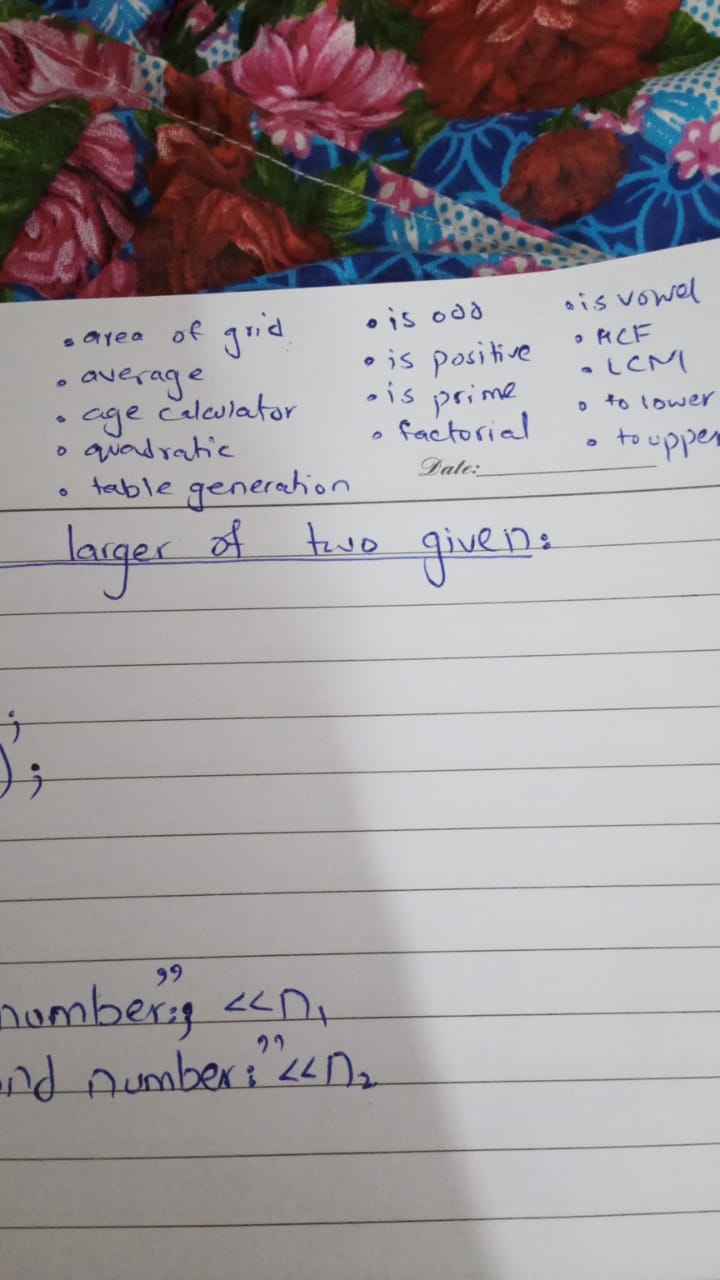 • area of grid
• average
• age calculator
• quadratic
• table generation
• is odd
• is positive
• is prime
• factorial
• is vowel
• HCF
• LCM
• to lower
• to upper
Date:
larger of two given:
;
);
number:" <<n1
number:" <<n2